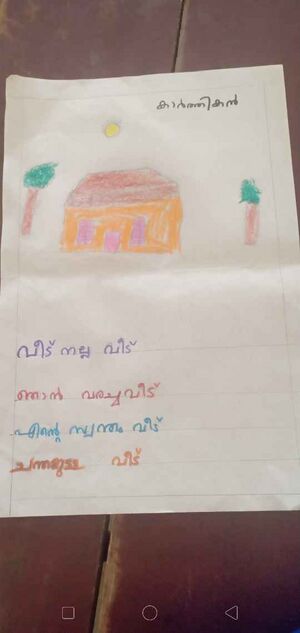 കാർത്തികൻ
വീട് നല്ല വീട്
ഞാൻ വരച്ച വീട്
എന്റെ സ്വന്തം വീട്
വീട്